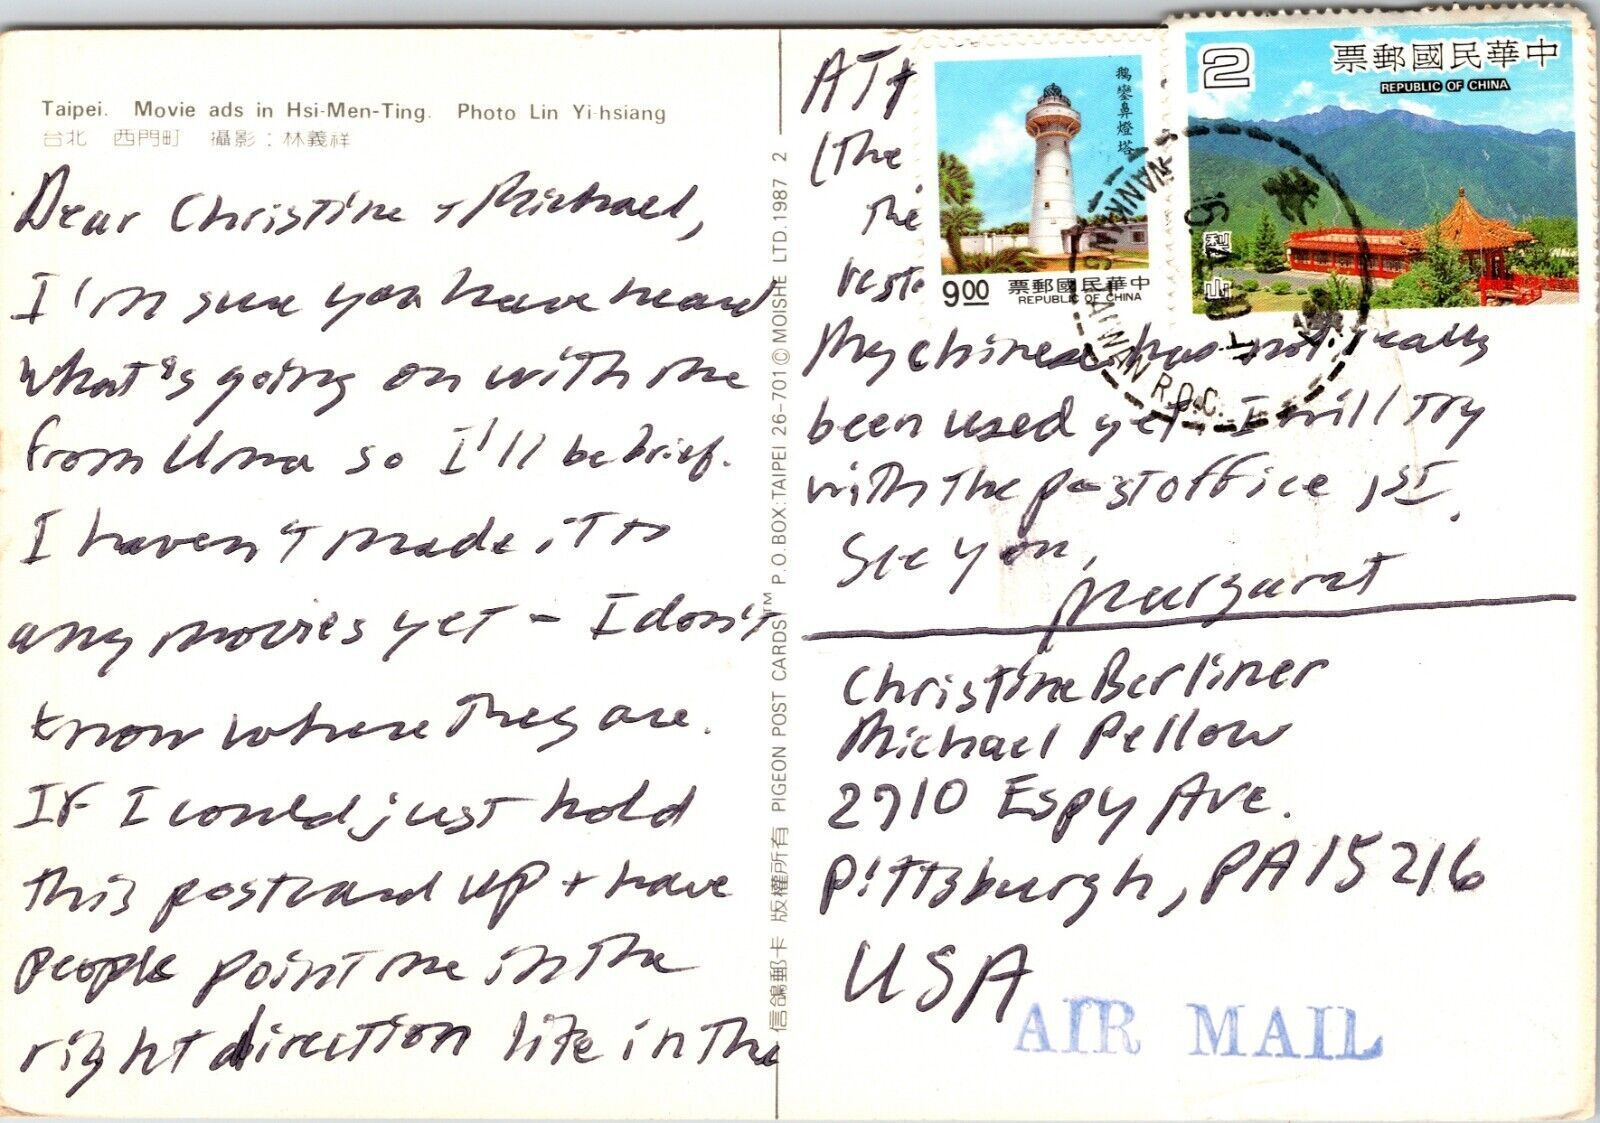 Taipei. Movie ads in Hsi-Men-Ting. Photo Lin Yi-hsiang
台北 西門町 攝影：林義祥
Dear Christine + Michael,
I'm sure you have heard
what's going on with me
from Uma so I'll be brief.
I haven't made it to
any movies yet - I don't
know where they are.
If I could just hold
this postcard up + have
people point me in the
right direction like in the
信鴿郵卡 版權所有 PIGEON POST CARDS™ P.O.BOX.TAIPEI 26-701 © MOISHE LTD. 1987 2
(the
the
My chinese has not really
been used yet. I will try
with the post office 1st.
See you,
Margaret
Christine Berliner
Michael Pellow
2910 Espy Ave.
Pittsburgh, PA 15216
USA
AIR MAIL
鵝鑾鼻燈塔
9.00
票郵國民華中
REPUBLIC OF CHINA
2
票郵國民華中
REPUBLIC OF CHINA
梨山
NANKANG
TAIWAN R.O.C.